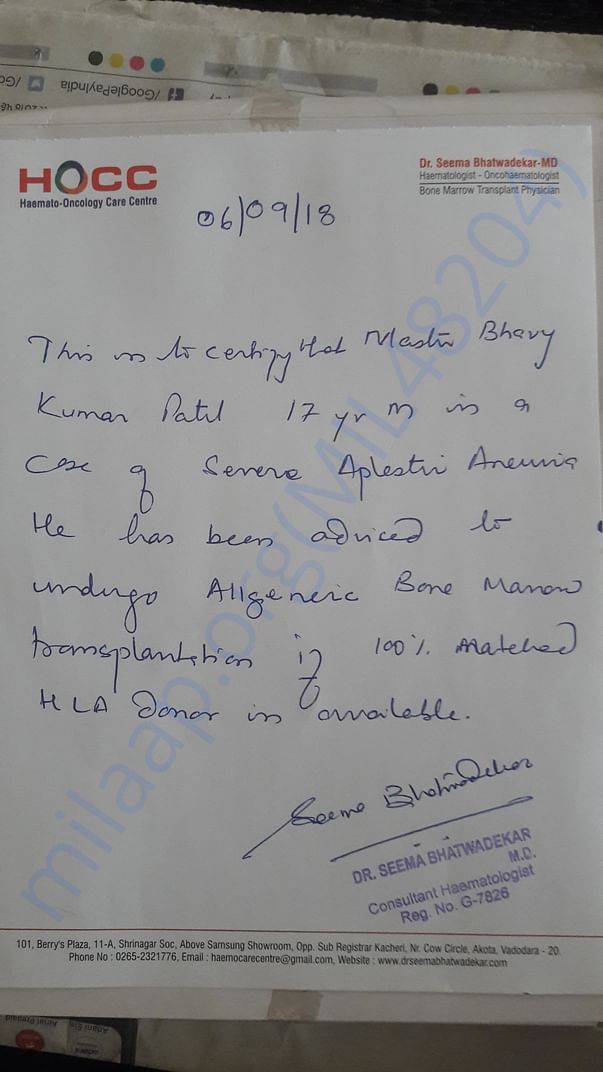 /GooglePayIndia
HOCC
Haemato-Oncology Care Centre
Dr. Seema Bhatwadekar-MD
Haematologist - Oncohaematologist
Bone Marrow Transplant Physician
06/09/18
This is to certify that Master Bhavy
Kumar Patil 17 yr m is a
case of Severe Aplastic Anemia
He has been adviced to
undergo Allgeneic Bone Marrow
transplantation if 100% matched
HLA donor is available.
Seema Bhatwadekar
DR. SEEMA BHATWADEKAR
M.D.
Consultant Haematologist
Reg. No. G-7826
101, Berry's Plaza, 11-A, Shrinagar Soc, Above Samsung Showroom, Opp. Sub Registrar Kacheri, Nr. Cow Circle, Akota, Vadodara - 20.
Phone No : 0265-2321776, Email : haemocarecentre@gmail.com, Website : www.drseemabhatwadekar.com
milaap.org(MIL48204)